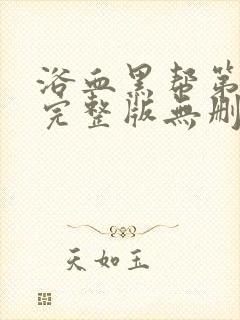 浴血黑帮第
完整版無删
天如玉